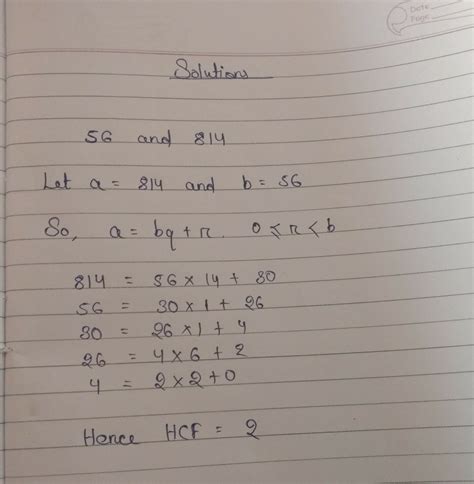 Date
Page
Solutions
56 and 814
Let a = 814 and b = 56
So, a = bq + r 0 ≤ r < b
814 = 56 × 14 + 30
56 = 30 × 1 + 26
30 = 26 × 1 + 4
26 = 4 × 6 + 2
4 = 2 × 2 + 0
Hence HCF = 2